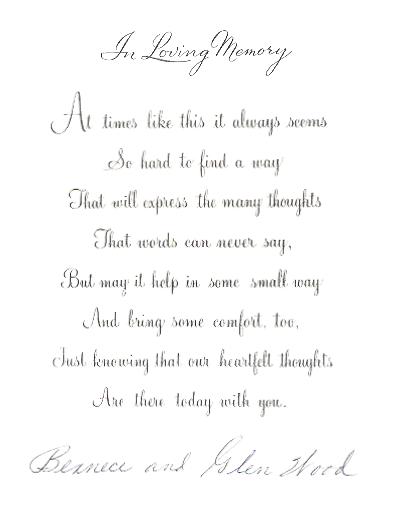 In Loving Memory
At times like this it always seems
So hard to find a way
That will express the many thoughts
That words can never say,
But may it help in some small way
And bring some comfort, too,
Just knowing that our heartfelt thoughts
Are there today with you.
and Glen Wood